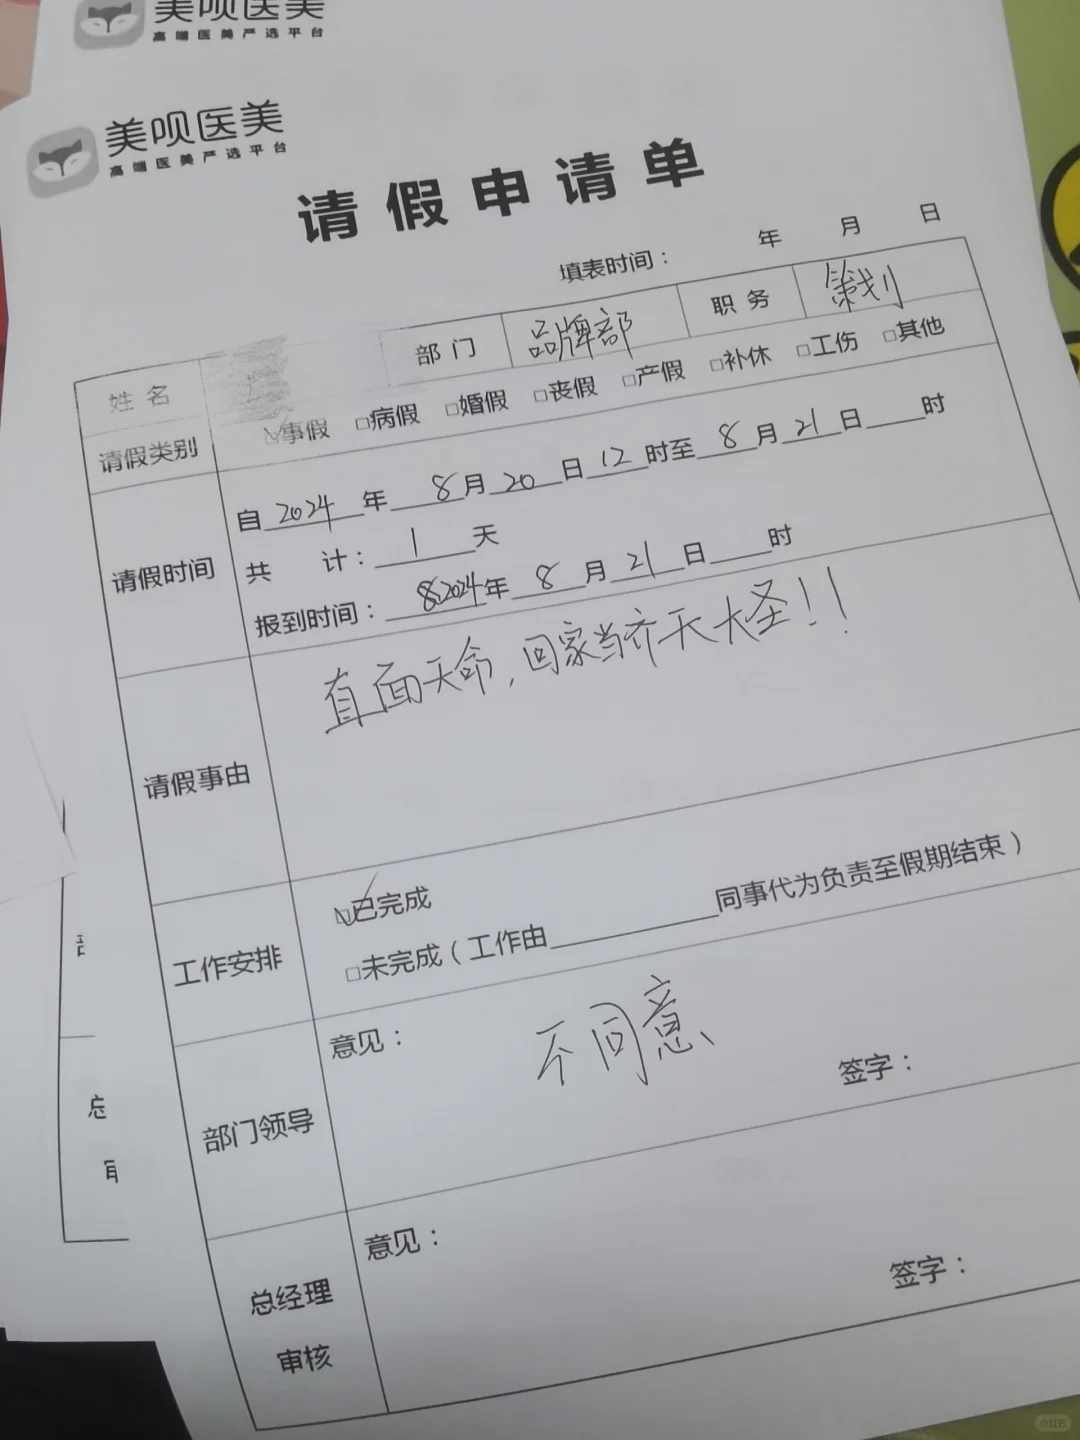 美呗医美
高端医美严选平台
美呗医美
高端医美严选平台
请假申请单
填表时间： 年 月 日
姓名 部门 品牌部 职务 策划
请假类别 ☑事假 □病假 □婚假 □丧假 □产假 □补休 □工伤 □其他
请假时间
自 2024 年 8 月 20 日 12 时至 8 月 21 日____时
共 计：1 天
报到时间：2024 年 8 月 21 日____时
请假事由
直面天命，回家当齐天大圣！！
工作安排
☑已完成
□未完成（工作由__________同事代为负责至假期结束）
部门领导
意见： 不同意
签字：
总经理
审核
意见：
签字：
小红书